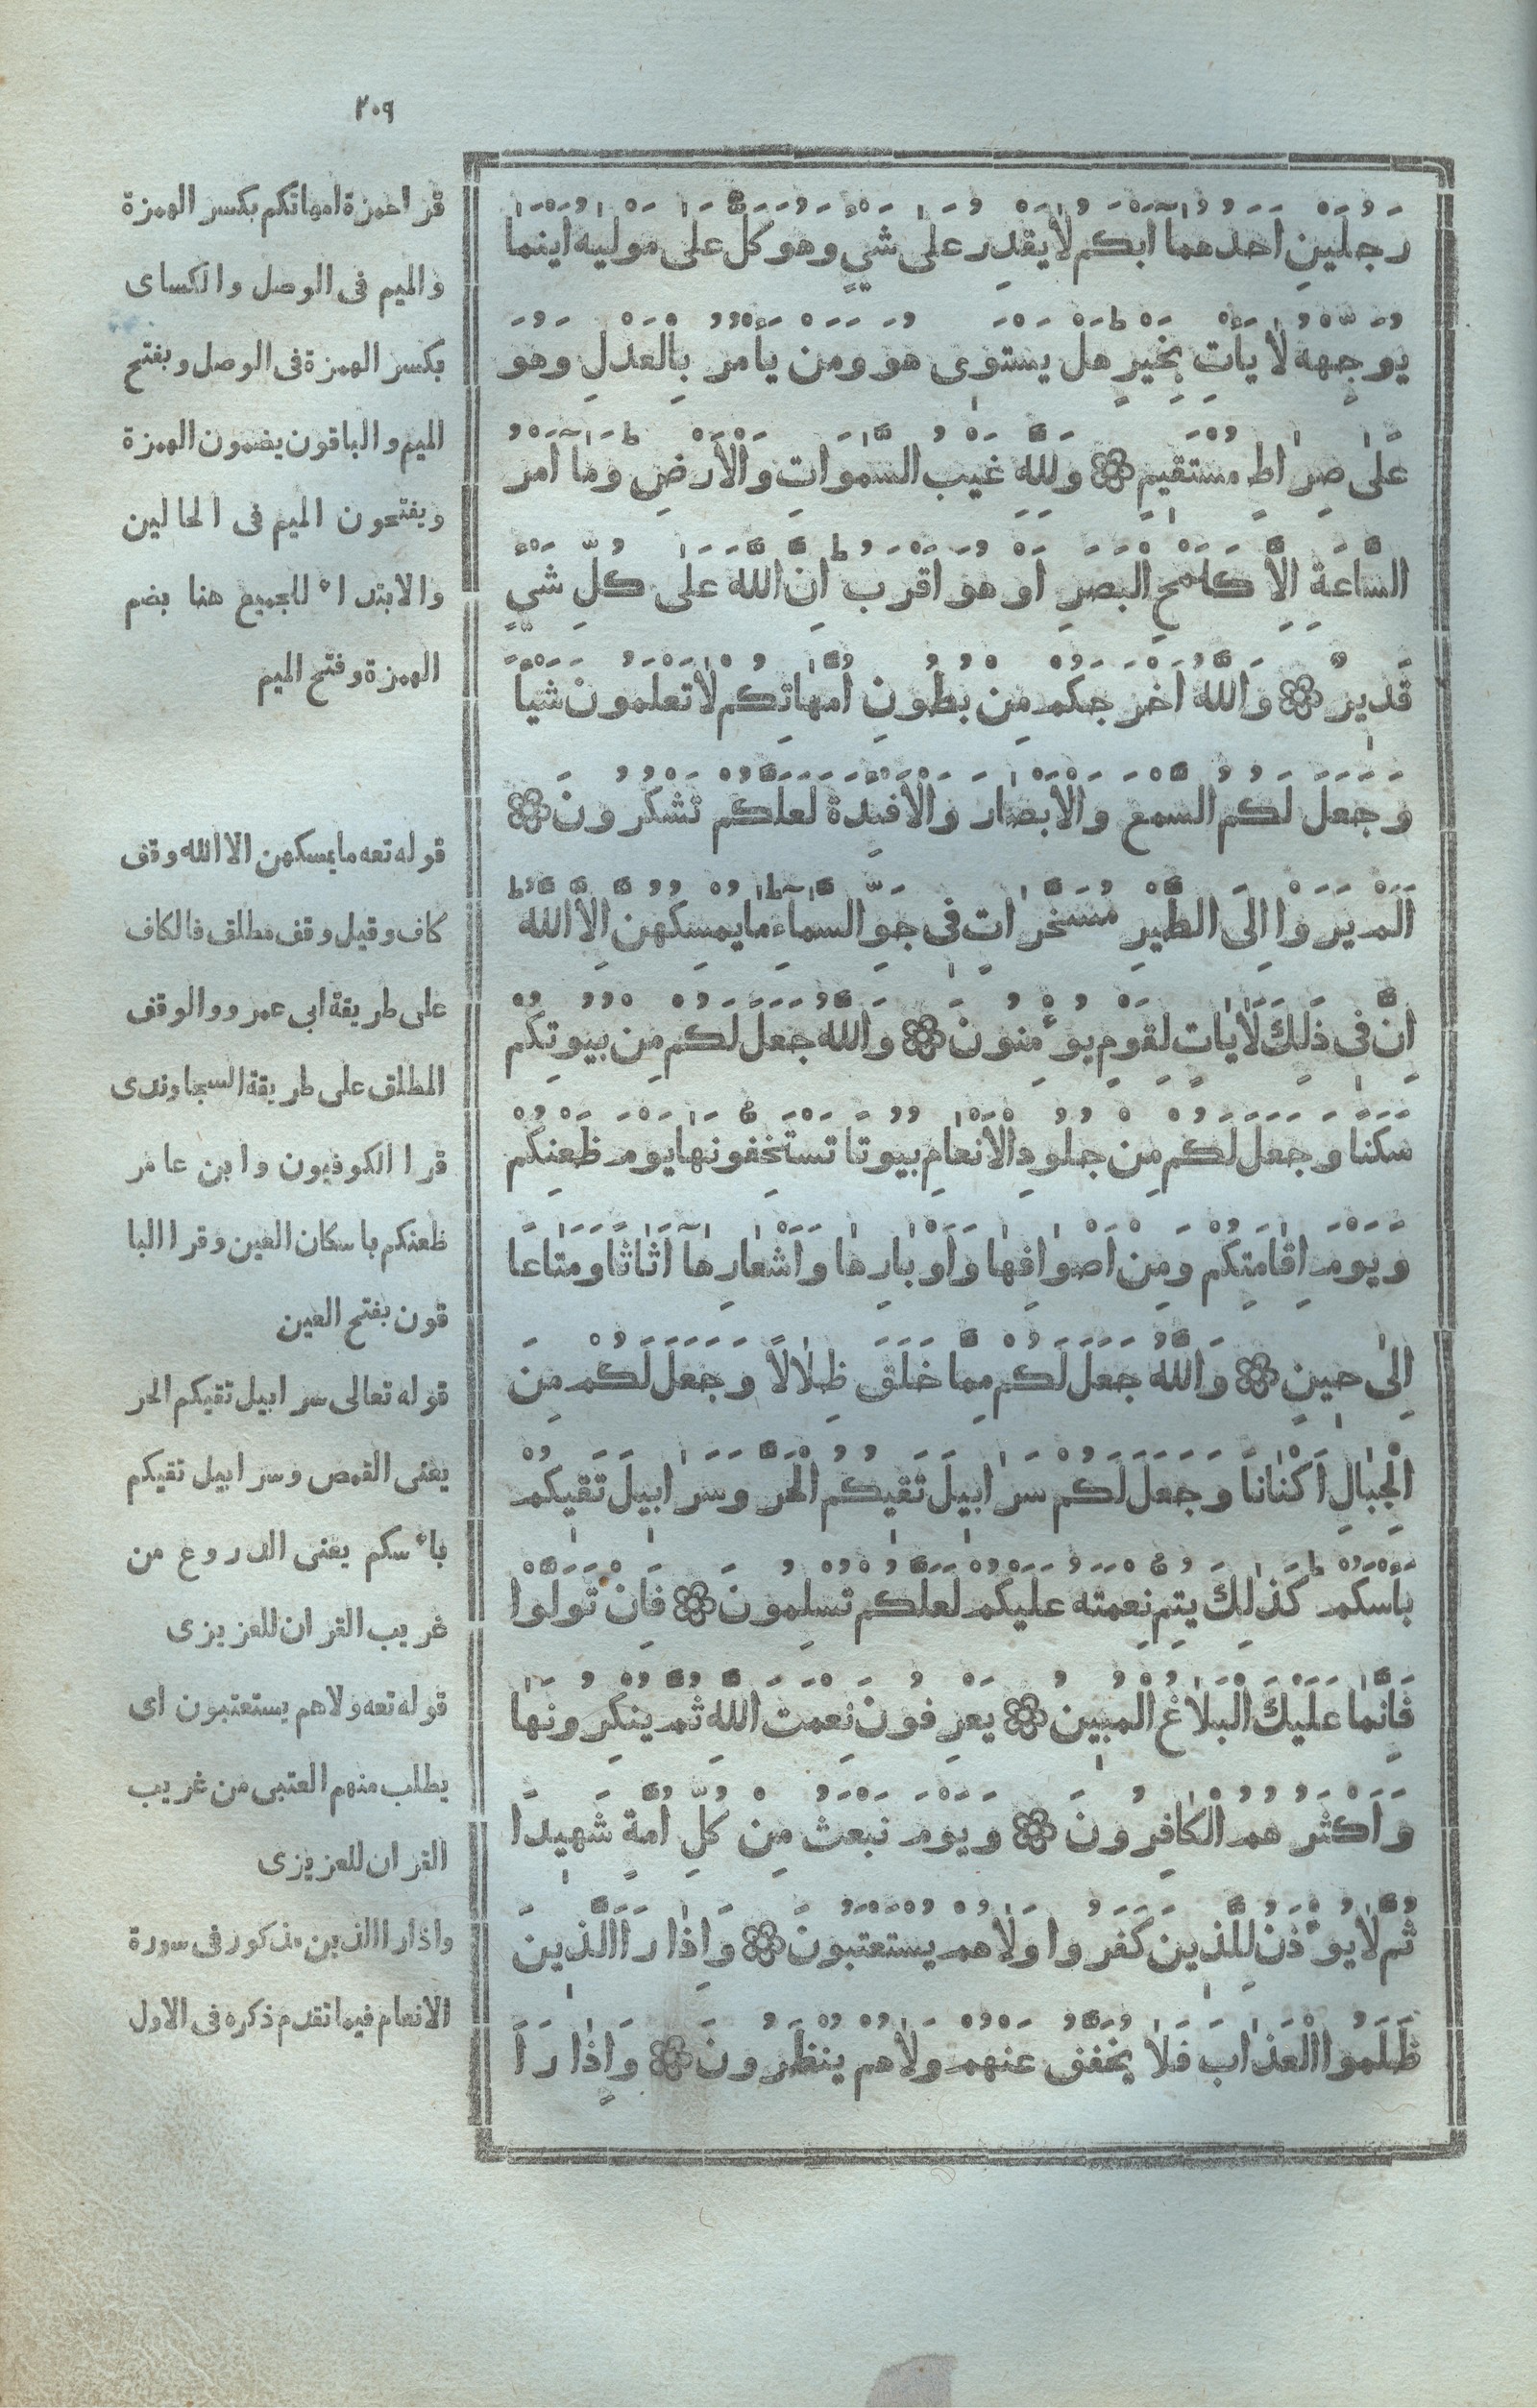 ٢٠٩
رَجُلَيْنِ اَحَدُهُمَآ اَبْكَمُ لَا يَقْدِرُ عَلٰى شَيْءٍ وَهُوَ كَلٌّ عَلٰى مَوْلٰيهُ اَيْنَمَا
يُوَجِّهْهُ لَا يَأْتِ بِخَيْرٍ هَلْ يَسْتَوِى هُوَ وَمَنْ يَأْمُرُ بِالْعَدْلِ وَهُوَ
عَلٰى صِرَاطٍ مُسْتَقِيمٍ ۞ وَلِلّٰهِ غَيْبُ السَّمٰوَاتِ وَالْاَرْضِ وَمَآ اَمْرُ
السَّاعَةِ اِلَّا كَلَمْحِ الْبَصَرِ اَوْ هُوَ اَقْرَبُ اِنَّ اللّٰهَ عَلٰى كُلِّ شَيْءٍ
قَدِيرٌ ۞ وَاللّٰهُ اَخْرَجَكُمْ مِنْ بُطُونِ اُمَّهَاتِكُمْ لَا تَعْلَمُونَ شَيْأً
وَجَعَلَ لَكُمُ السَّمْعَ وَالْاَبْصَارَ وَالْاَفْئِدَةَ لَعَلَّكُمْ تَشْكُرُونَ ۞
اَلَمْ يَرَوْا اِلَى الطَّيْرِ مُسَخَّرَاتٍ فِى جَوِّ السَّمَآءِ مَا يُمْسِكُهُنَّ اِلَّا اللّٰهُ
اِنَّ فِى ذٰلِكَ لَاٰيَاتٍ لِقَوْمٍ يُوءْمِنُونَ ۞ وَاللّٰهُ جَعَلَ لَكُمْ مِنْ بُيُوتِكُمْ
سَكَنًا وَجَعَلَ لَكُمْ مِنْ جُلُودِ الْاَنْعَامِ بُيُوتًا تَسْتَخِفُّونَهَا يَوْمَ ظَعْنِكُمْ
وَيَوْمَ اِقَامَتِكُمْ وَمِنْ اَصْوَافِهَا وَاَوْبَارِهَا وَاَشْعَارِهَآ اَثَاثًا وَمَتَاعًا
اِلٰى حِينٍ ۞ وَاللّٰهُ جَعَلَ لَكُمْ مِمَّا خَلَقَ ظِلَالًا وَجَعَلَ لَكُمْ مِنَ
الْجِبَالِ اَكْنَانًا وَجَعَلَ لَكُمْ سَرَابِيلَ تَقِيكُمُ الْحَرَّ وَسَرَابِيلَ تَقِيكُمْ
بَأْسَكُمْ كَذٰلِكَ يُتِمُّ نِعْمَتَهُ عَلَيْكُمْ لَعَلَّكُمْ تُسْلِمُونَ ۞ فَاِنْ تَوَلَّوْا
فَاِنَّمَا عَلَيْكَ الْبَلَاغُ الْمُبِينُ ۞ يَعْرِفُونَ نِعْمَتَ اللّٰهِ ثُمَّ يُنْكِرُونَهَا
وَاَكْثَرُهُمُ الْكَافِرُونَ ۞ وَيَوْمَ نَبْعَثُ مِنْ كُلِّ اُمَّةٍ شَهِيدًا
ثُمَّ لَا يُوءْذَنُ لِلَّذِينَ كَفَرُوا وَلَا هُمْ يُسْتَعْتَبُونَ ۞ وَاِذَا رَاَ الَّذِينَ
ظَلَمُوا الْعَذَابَ فَلَا يُخَفَّفُ عَنْهُمْ وَلَا هُمْ يُنْظَرُونَ ۞ وَاِذَا رَاَ
قرا حمزة امهاتكم بكسر الهمزة
والميم فى الوصل والكساى
بكسر الهمزة فى الوصل وبفتح
الميم والباقون يضمون الهمزة
ويفتحون الميم فى الحالين
والابتداء للجميع هنا بضم
الهمزة وفتح الميم
قوله تعه مايمسكهن الا الله وقف
كاف وقيل وقف مطلق فالكاف
على طريقة ابى عمرو والوقف
المطلق على طريقة السجاوندى
قرا الكوفيون وابن عامر
ظعنكم باسكان العين وقرا البا
قون بفتح العين
قوله تعالى سرابيل تقيكم الحر
يعنى القمص وسرابيل تقيكم
باءسكم يعنى الدروع من
غريب القران للعزيزى
قوله تعه ولاهم يستعتبون اى
يطلب منهم العتبى من غريب
القران للعزيزى
واذا را الذين مذكور فى سورة
الانعام فيما تقدم ذكره فى الاول